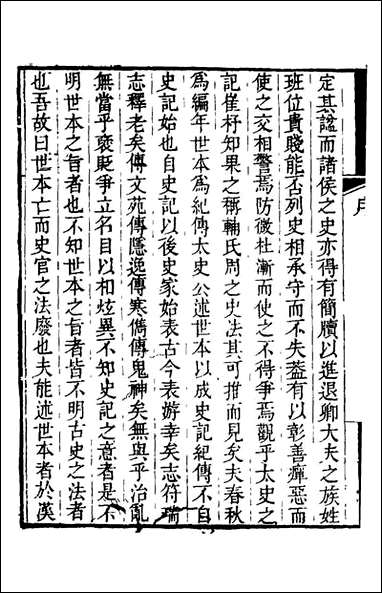 序
定其諡而諸侯之史亦得有簡牘以進退卿大夫之族姓
班位貴賤能否列史相承守而不失葢有以彰善癉惡而
使之交相警焉防微杜漸而使之不得爭焉觀乎太史之
記崔杼知果之稱輔氏周之史法其可推而見矣夫春秋
為編年世本為紀傳太史公述世本以成史記紀傳不自
史記始也自史記以後史家始表古今表游幸矣志符瑞
志釋老矣傳文苑傳隱逸傳寒儁傳鬼神矣無與乎治亂
無當乎襃貶爭立名目以相炫異不知史記之意者是不
明世本之旨者也不知世本之旨者皆不明古史之法者
也吾故曰世本亡而史官之法廢也夫能述世本者於漢